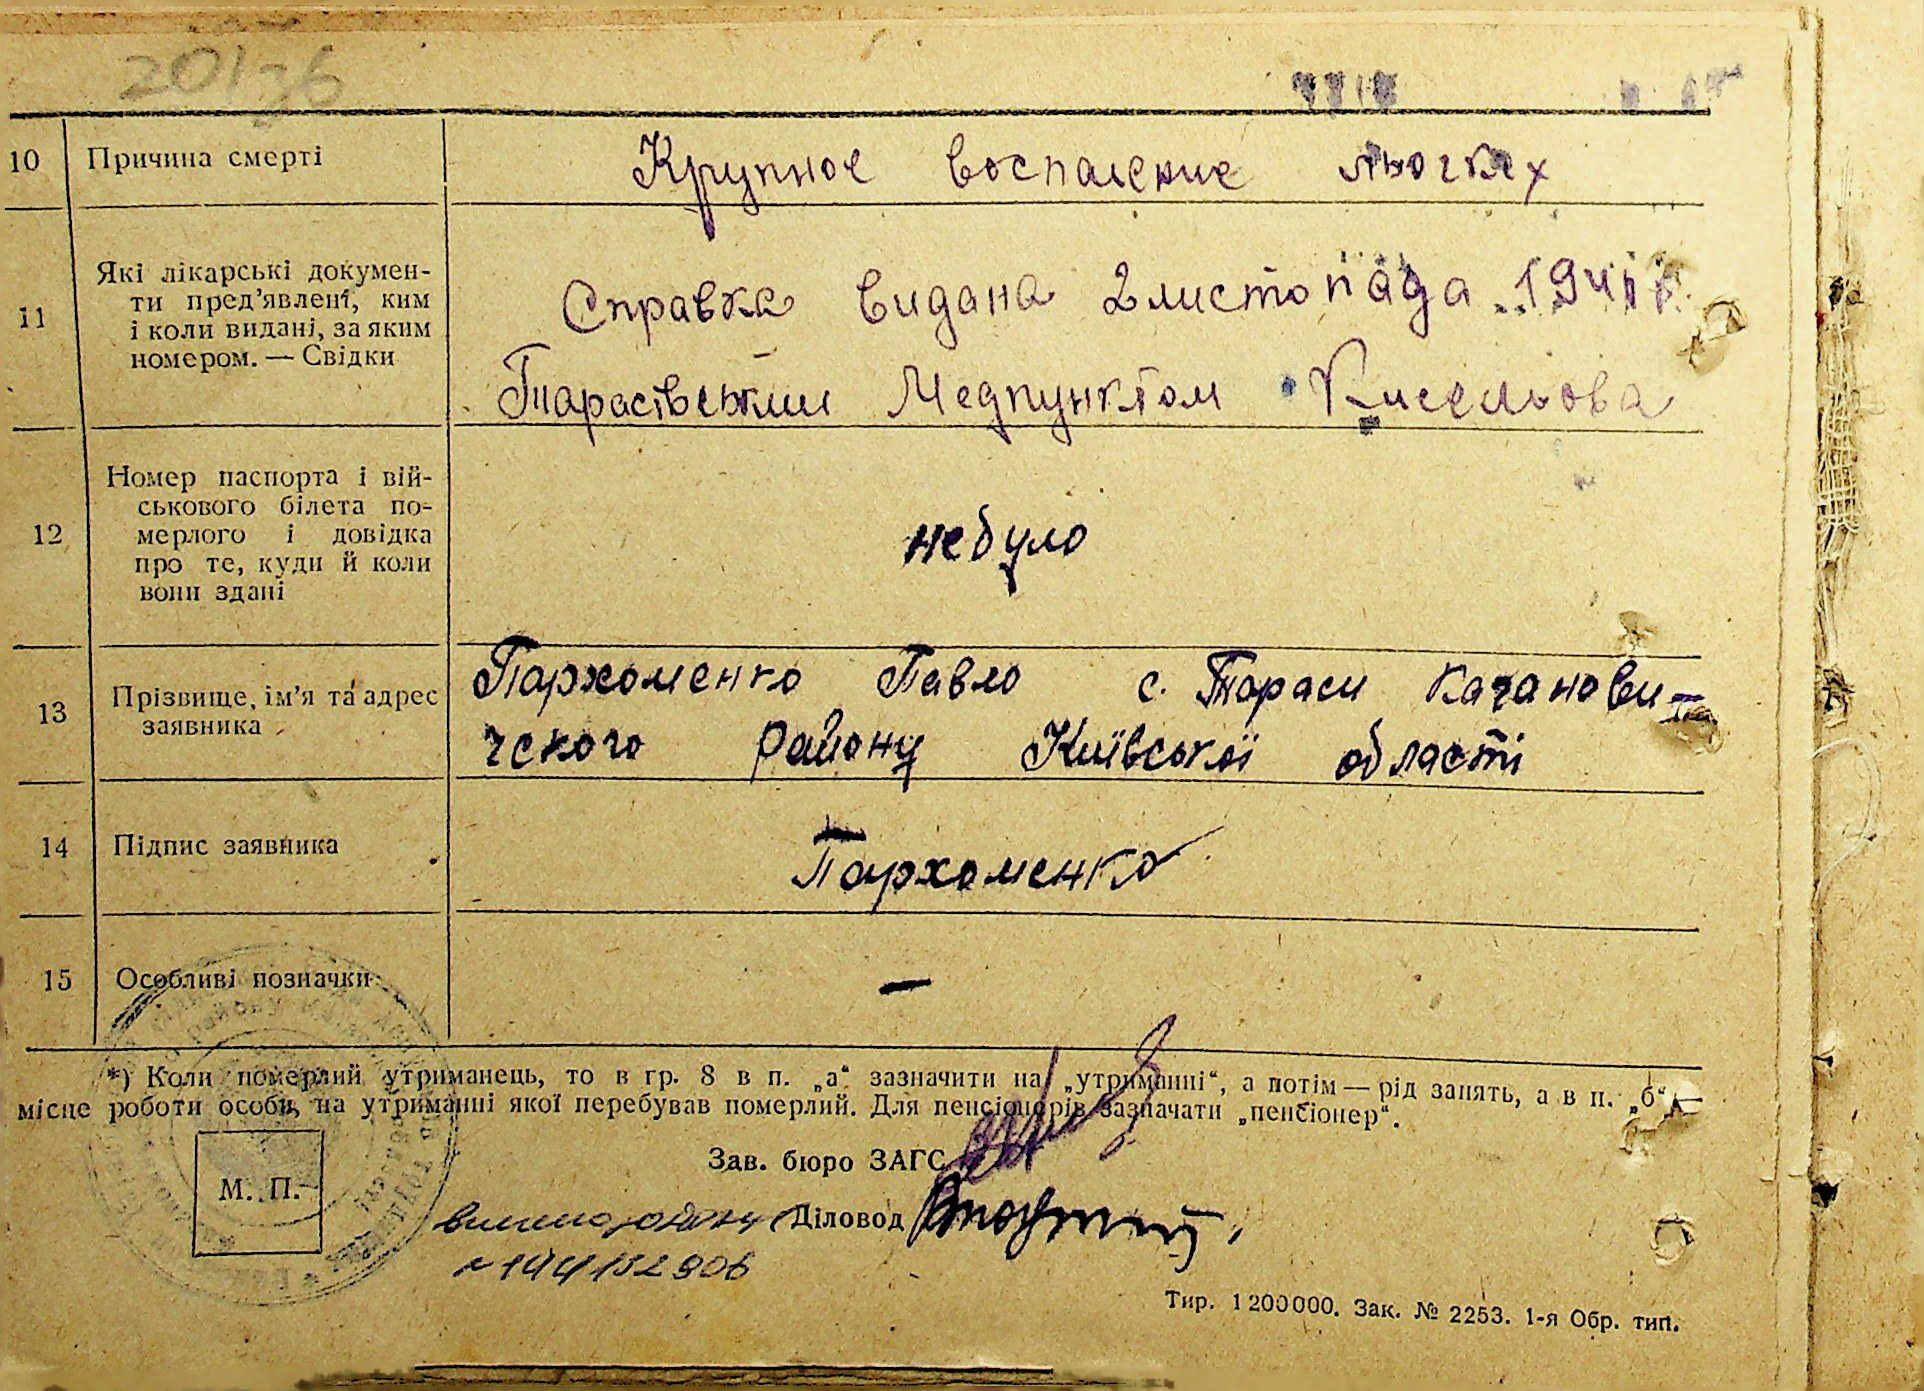 201
10 Причина смерті Крупное воспаление льогкех
11 Які лікарські докумен-
ти пред'явлені, ким
і коли видані, за яким
номером. — Свідки
Справка видана 2 листопада 194
Тарасівським Медпунктом Кисельова
12 Номер паспорта і вій-
ськового білета по-
мерлого і довідка
про те, куди й коли
вони здані
небуло
13 Прізвище, ім'я та адрес
заявника
Пархоменко Павло с. Тараси Кагановн-
чского району Київської області
14 Підпис заявника Пархоменко
15 Особливі позначки —
*) Коли померлий утриманець, то в гр. 8 в п. „а“ зазначити на „утриманні“, а потім — рід занять, а в п. „б“ —
місце роботи особи, на утриманні якої перебував померлий. Для пенсіонерів зазначати „пенсіонер“.
Зав. бюро ЗАГС
М. П.
Діловод
Тир. 1200000. Зак. № 2253. 1-я Обр. тип.